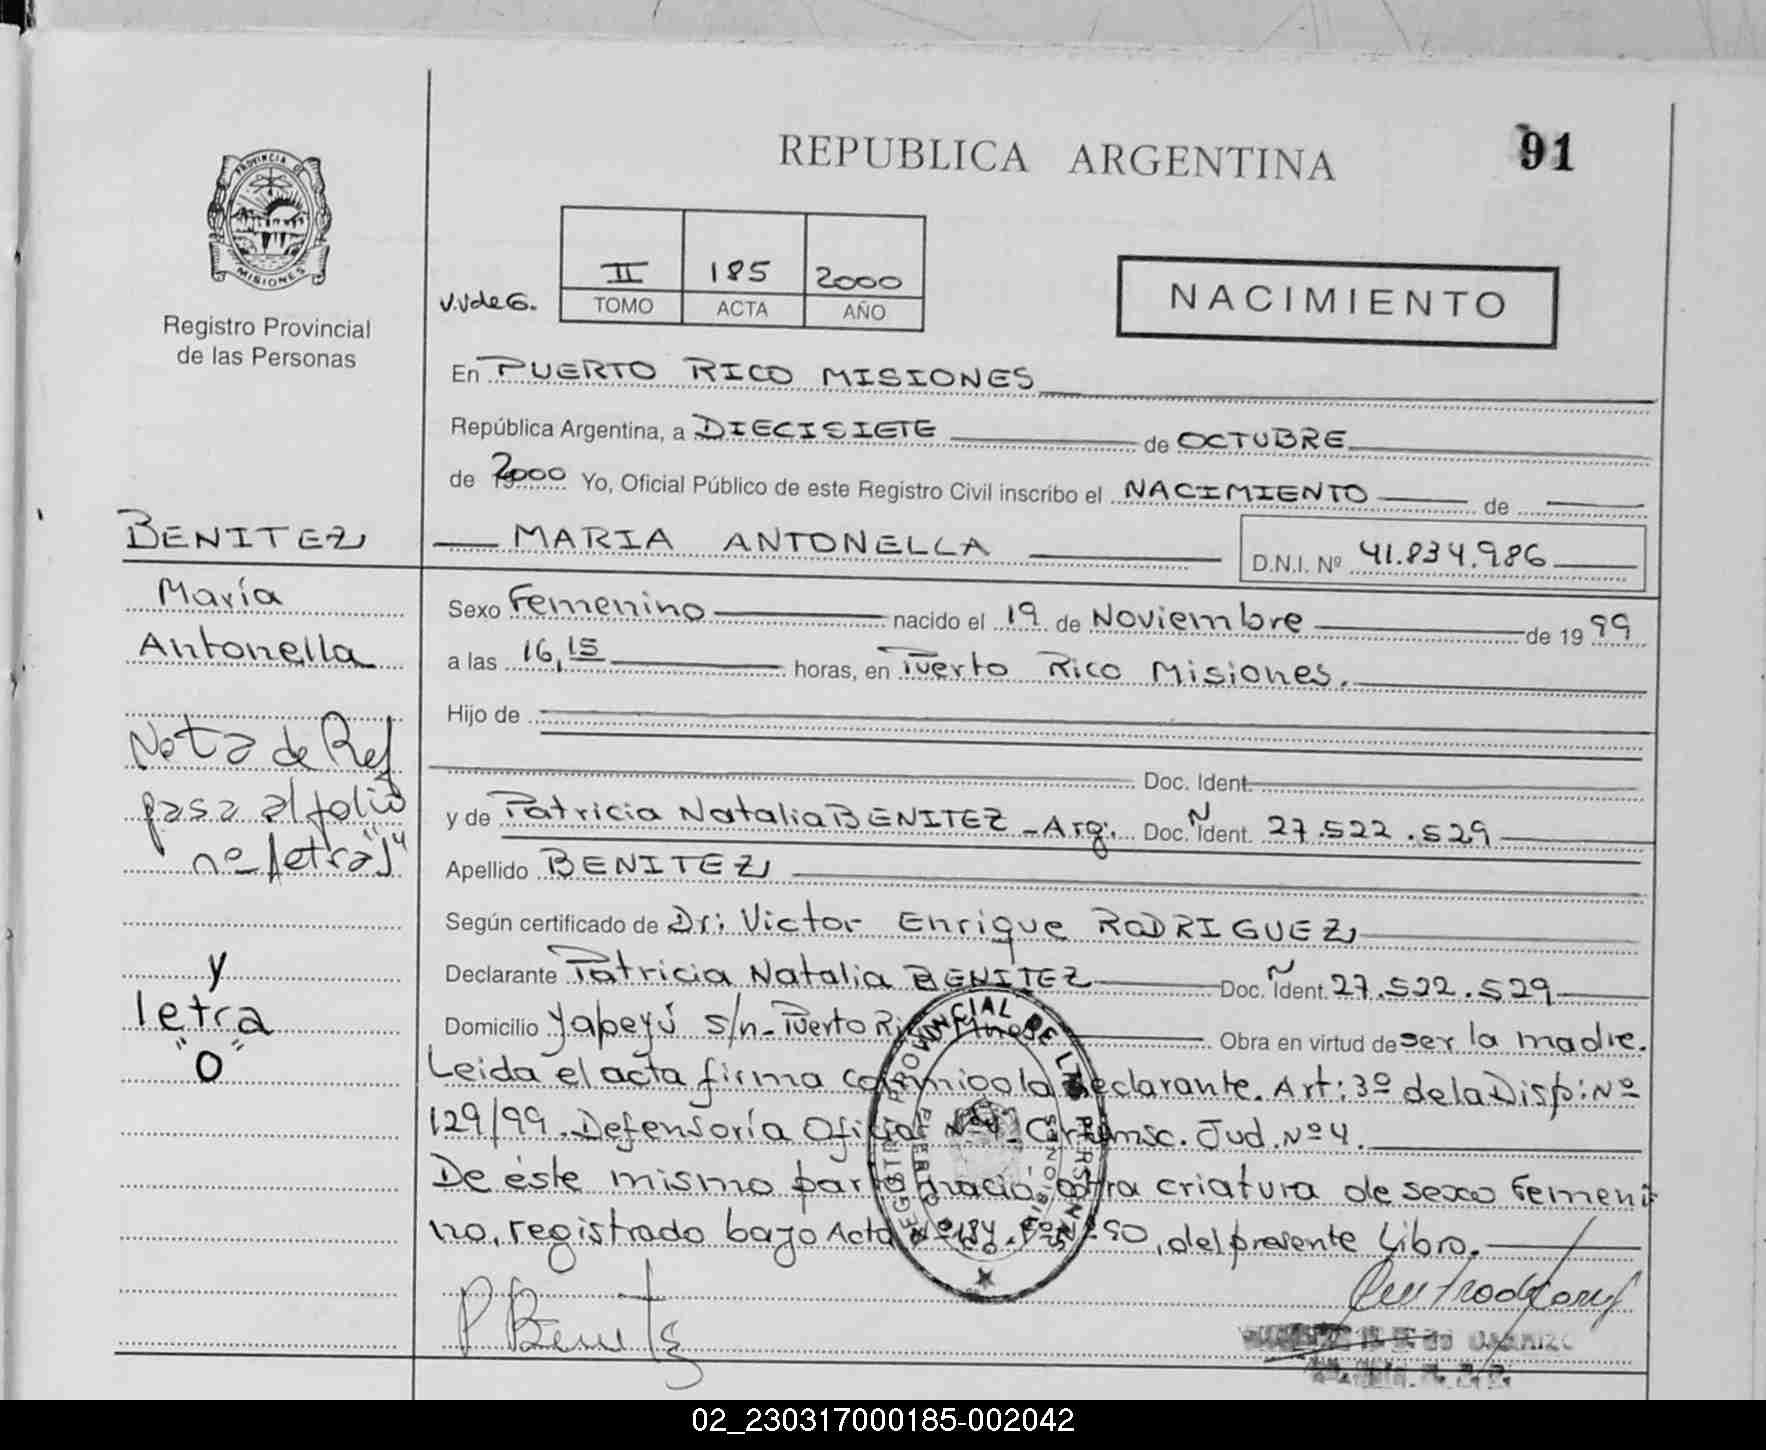 REPUBLICA ARGENTINA
91
PROVINCIA DE
MISIONES
Registro Provincial
de las Personas
V.V de G.
II 185 2000
TOMO ACTA AÑO
NACIMIENTO
En PUERTO RICO MISIONES
República Argentina, a DIECISIETE de OCTUBRE
de 2000 Yo, Oficial Público de este Registro Civil inscribo el NACIMIENTO de
BENITEZ MARIA ANTONELLA D.N.I. Nº 41.834.986
María
Antonella
Nota de Ref
pasa al folio
nº letra "J"
y
letra
"O"
Sexo Femenino nacido el 19 de Noviembre de 1999
a las 16,15 horas, en Puerto Rico Misiones.
Hijo de
Doc. Ident.
y de Patricia Natalia BENITEZ - Arg. Doc. N Ident. 27.522.529
Apellido BENITEZ
Según certificado de Dr: Victor Enrique RODRIGUEZ
Declarante Patricia Natalia BENITEZ Doc. N Ident. 27.522.529
Domicilio Yapeyú s/n - Puerto Rico Mnes Obra en virtud de ser la madre.
Leida el acta firma conmigo la declarante. Art: 3º de la Disp: Nº
129/99. Defensoría Oficial Nº 4 - Circunsc. Jud. Nº 4.
De éste mismo parto nació otra criatura de sexo Femeni
no, registrado bajo Acta Nº 184. Fº Nº 90, del presente Libro.
REGISTRO PROVINCIAL DE LAS PERSONAS
PUERTO RICO
MISIONES
P Benitez
02_230317000185-002042